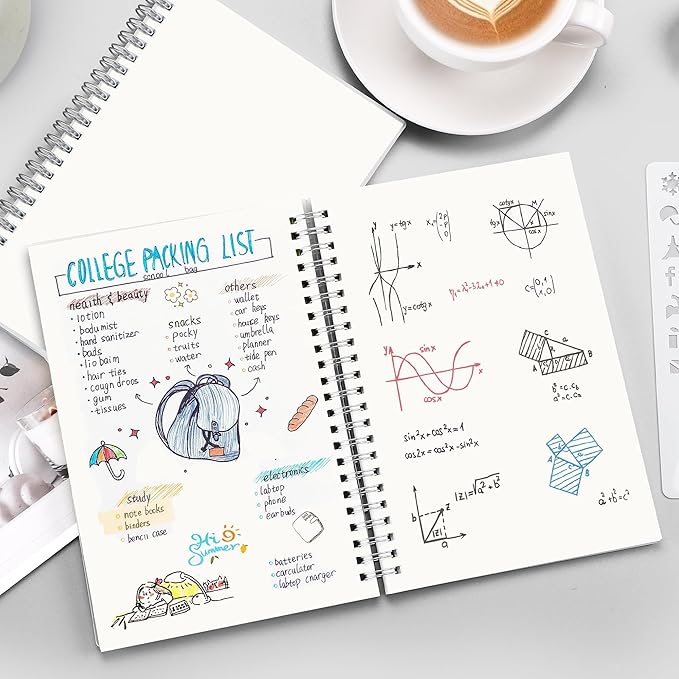 COLLEGE PACKING LIST
scnool bag
nealth & beauty
lotion
bodu mist
hand sanitizer
bads
lio baim
hair ties
cougn droos
gum
tissues
snacks
pocky
truits
water
others
wallet
car keys
house keys
umbrella
planner
tide pen
cash
study
note books
binders
bencil case
electronics
labtop
phone
earbuds
batteries
carculator
labtop charger
Hi
Summer
y
y=tgx
x
y=ctgx
cotgx
M
sinx
cosx
y
sinx
x
cosx
sin²x+cos²x=1
cos2x=cos²x-sin²x
C
a
A
B
b²=c·c_b
a²=c·c_a
b
z
|z|
a
|z|=√a²+b²
a
b
c
a²+b²=c²